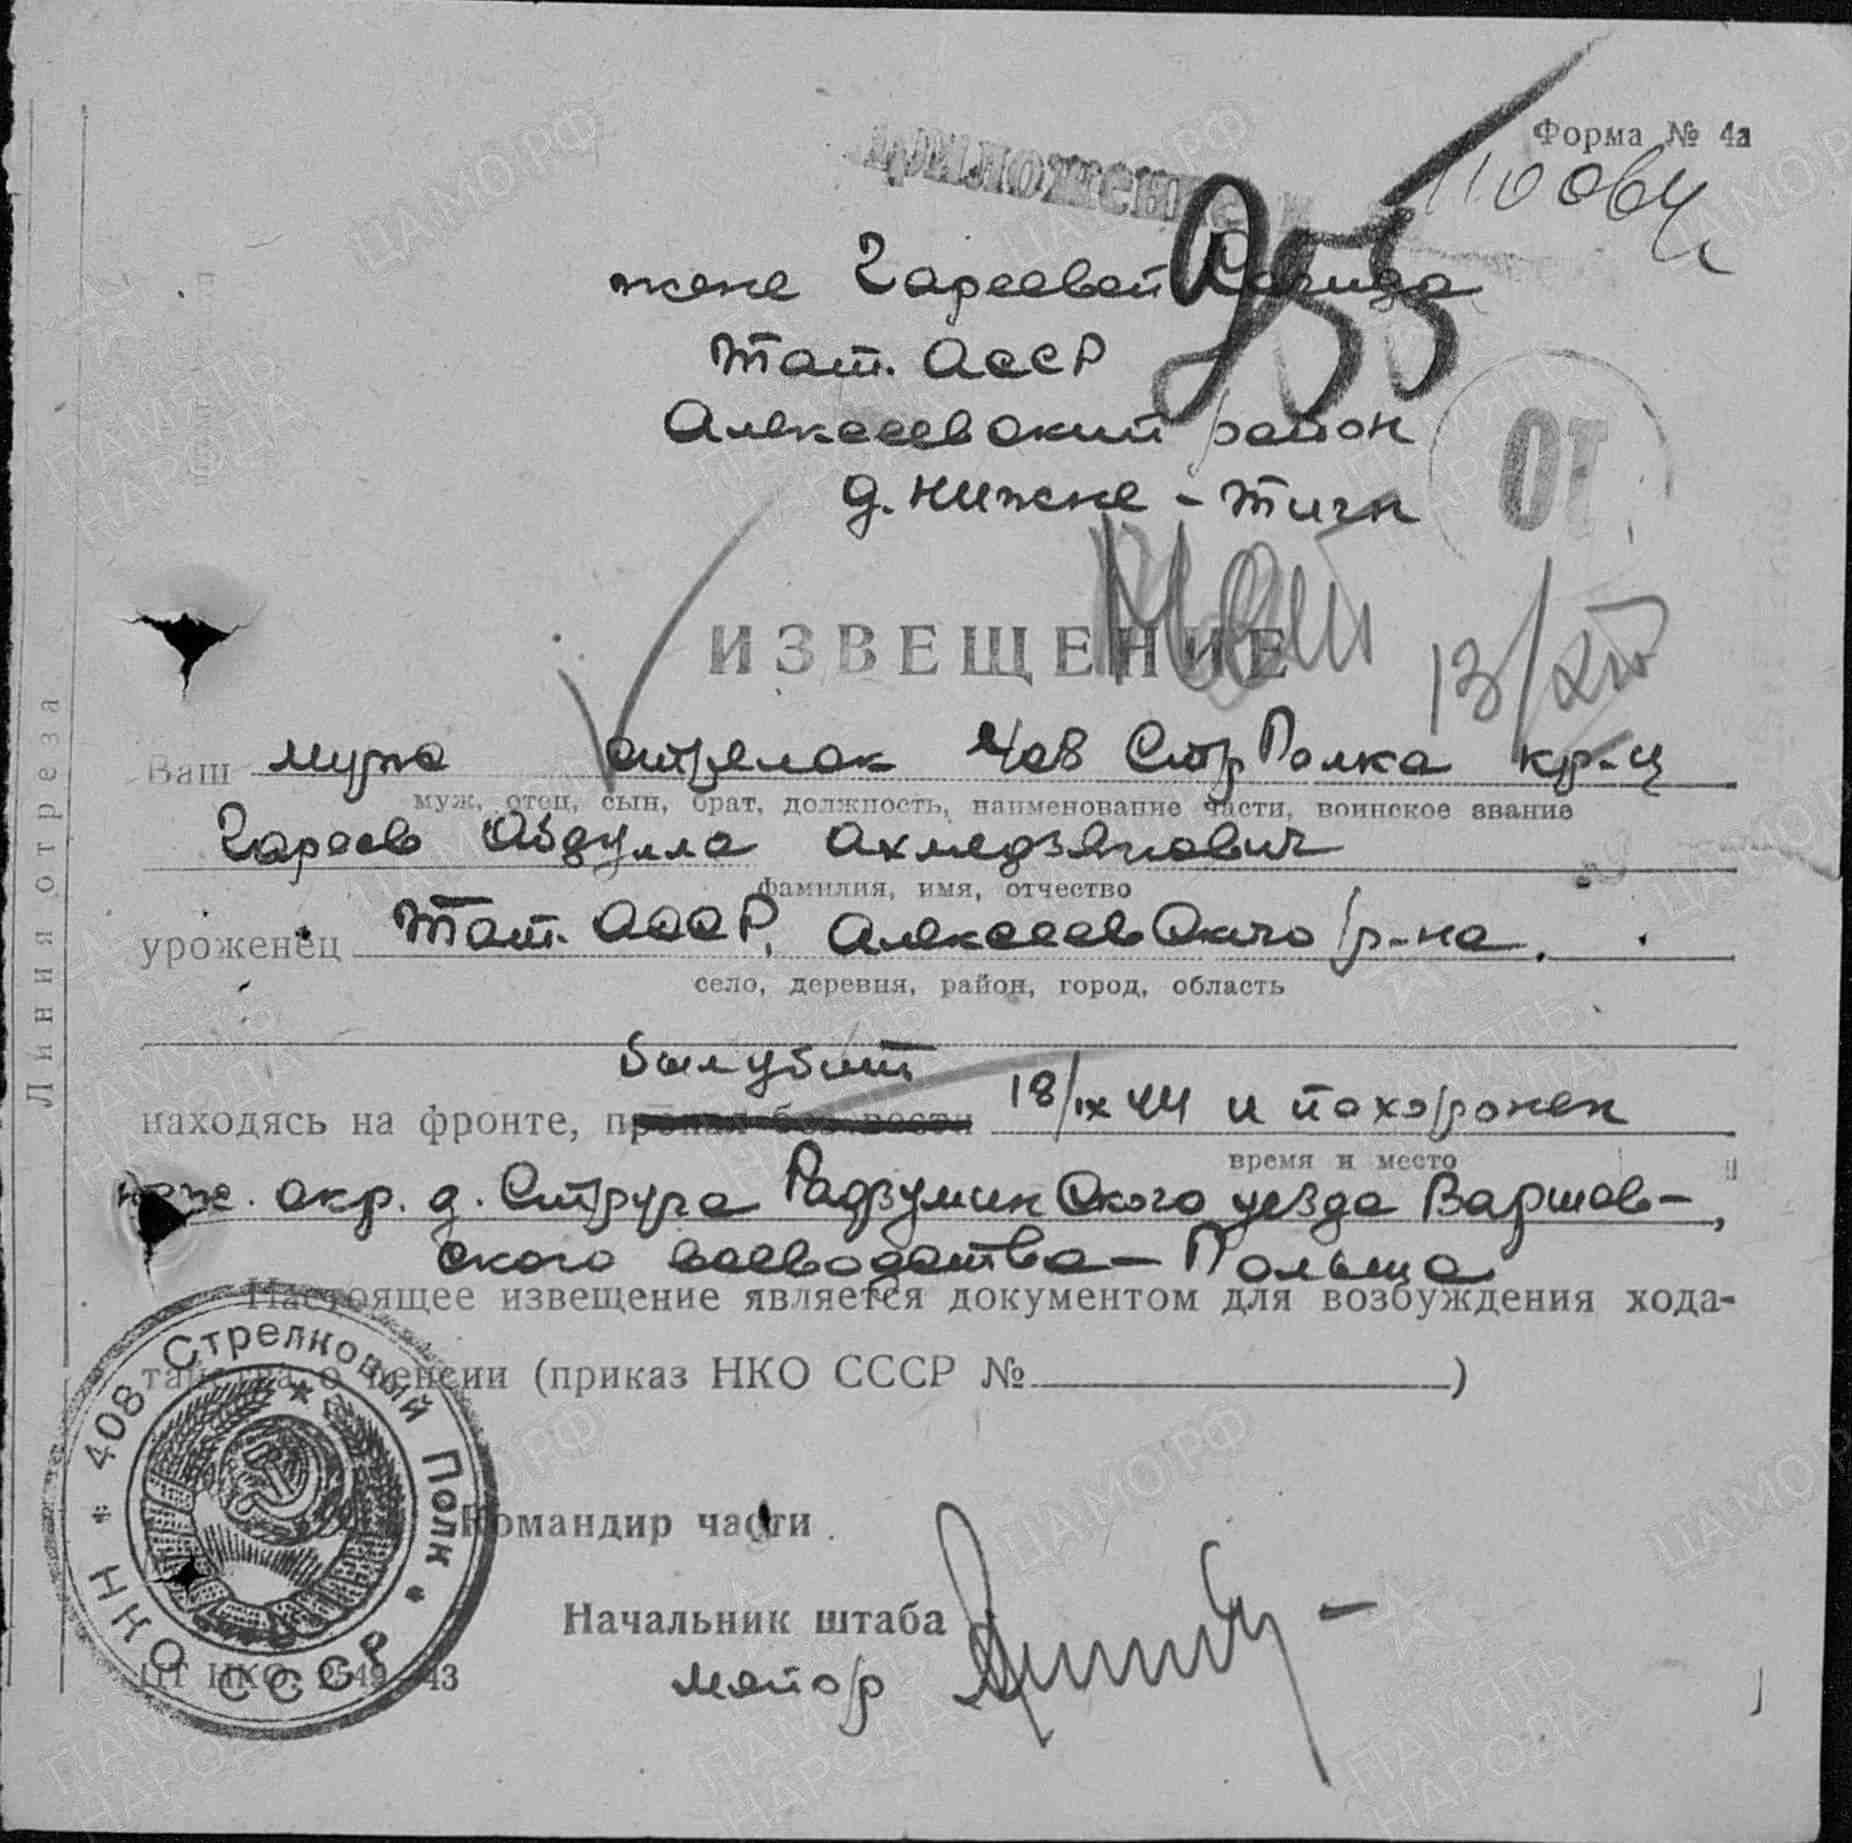 Форма № 4а
Приложение
955
жене Гареевой
Тат. АССР
Алексеевский район
д. Нижне-Тиги
ОТ
ИЗВЕЩЕНИЕ
13/XII
Ваш мужа стрелок 408 Стр Полка кр-ц
муж, отец, сын, брат, должность, наименование части, воинское звание
Гареев Абдулла Ахмедзянович
фамилия, имя, отчество
уроженец Тат. АССР, Алексеевского р-на.
село, деревня, район, город, область
был убит
находясь на фронте, пропал без вести 18/IX 44 и похоронен
время и место
юж. окр. д. Струга Радзуминского уезда Варшав-
ского воеводства - Польша
Настоящее извещение является документом для возбуждения хода-
тайства о пенсии (приказ НКО СССР №)
Командир части
Начальник штаба
майор
408 Стрелковый Полк * НКО СССР *
ЦТ НКО. 2549 43
Линия отреза
ЦАМО.РФ
ПАМЯТЬ НАРОДА